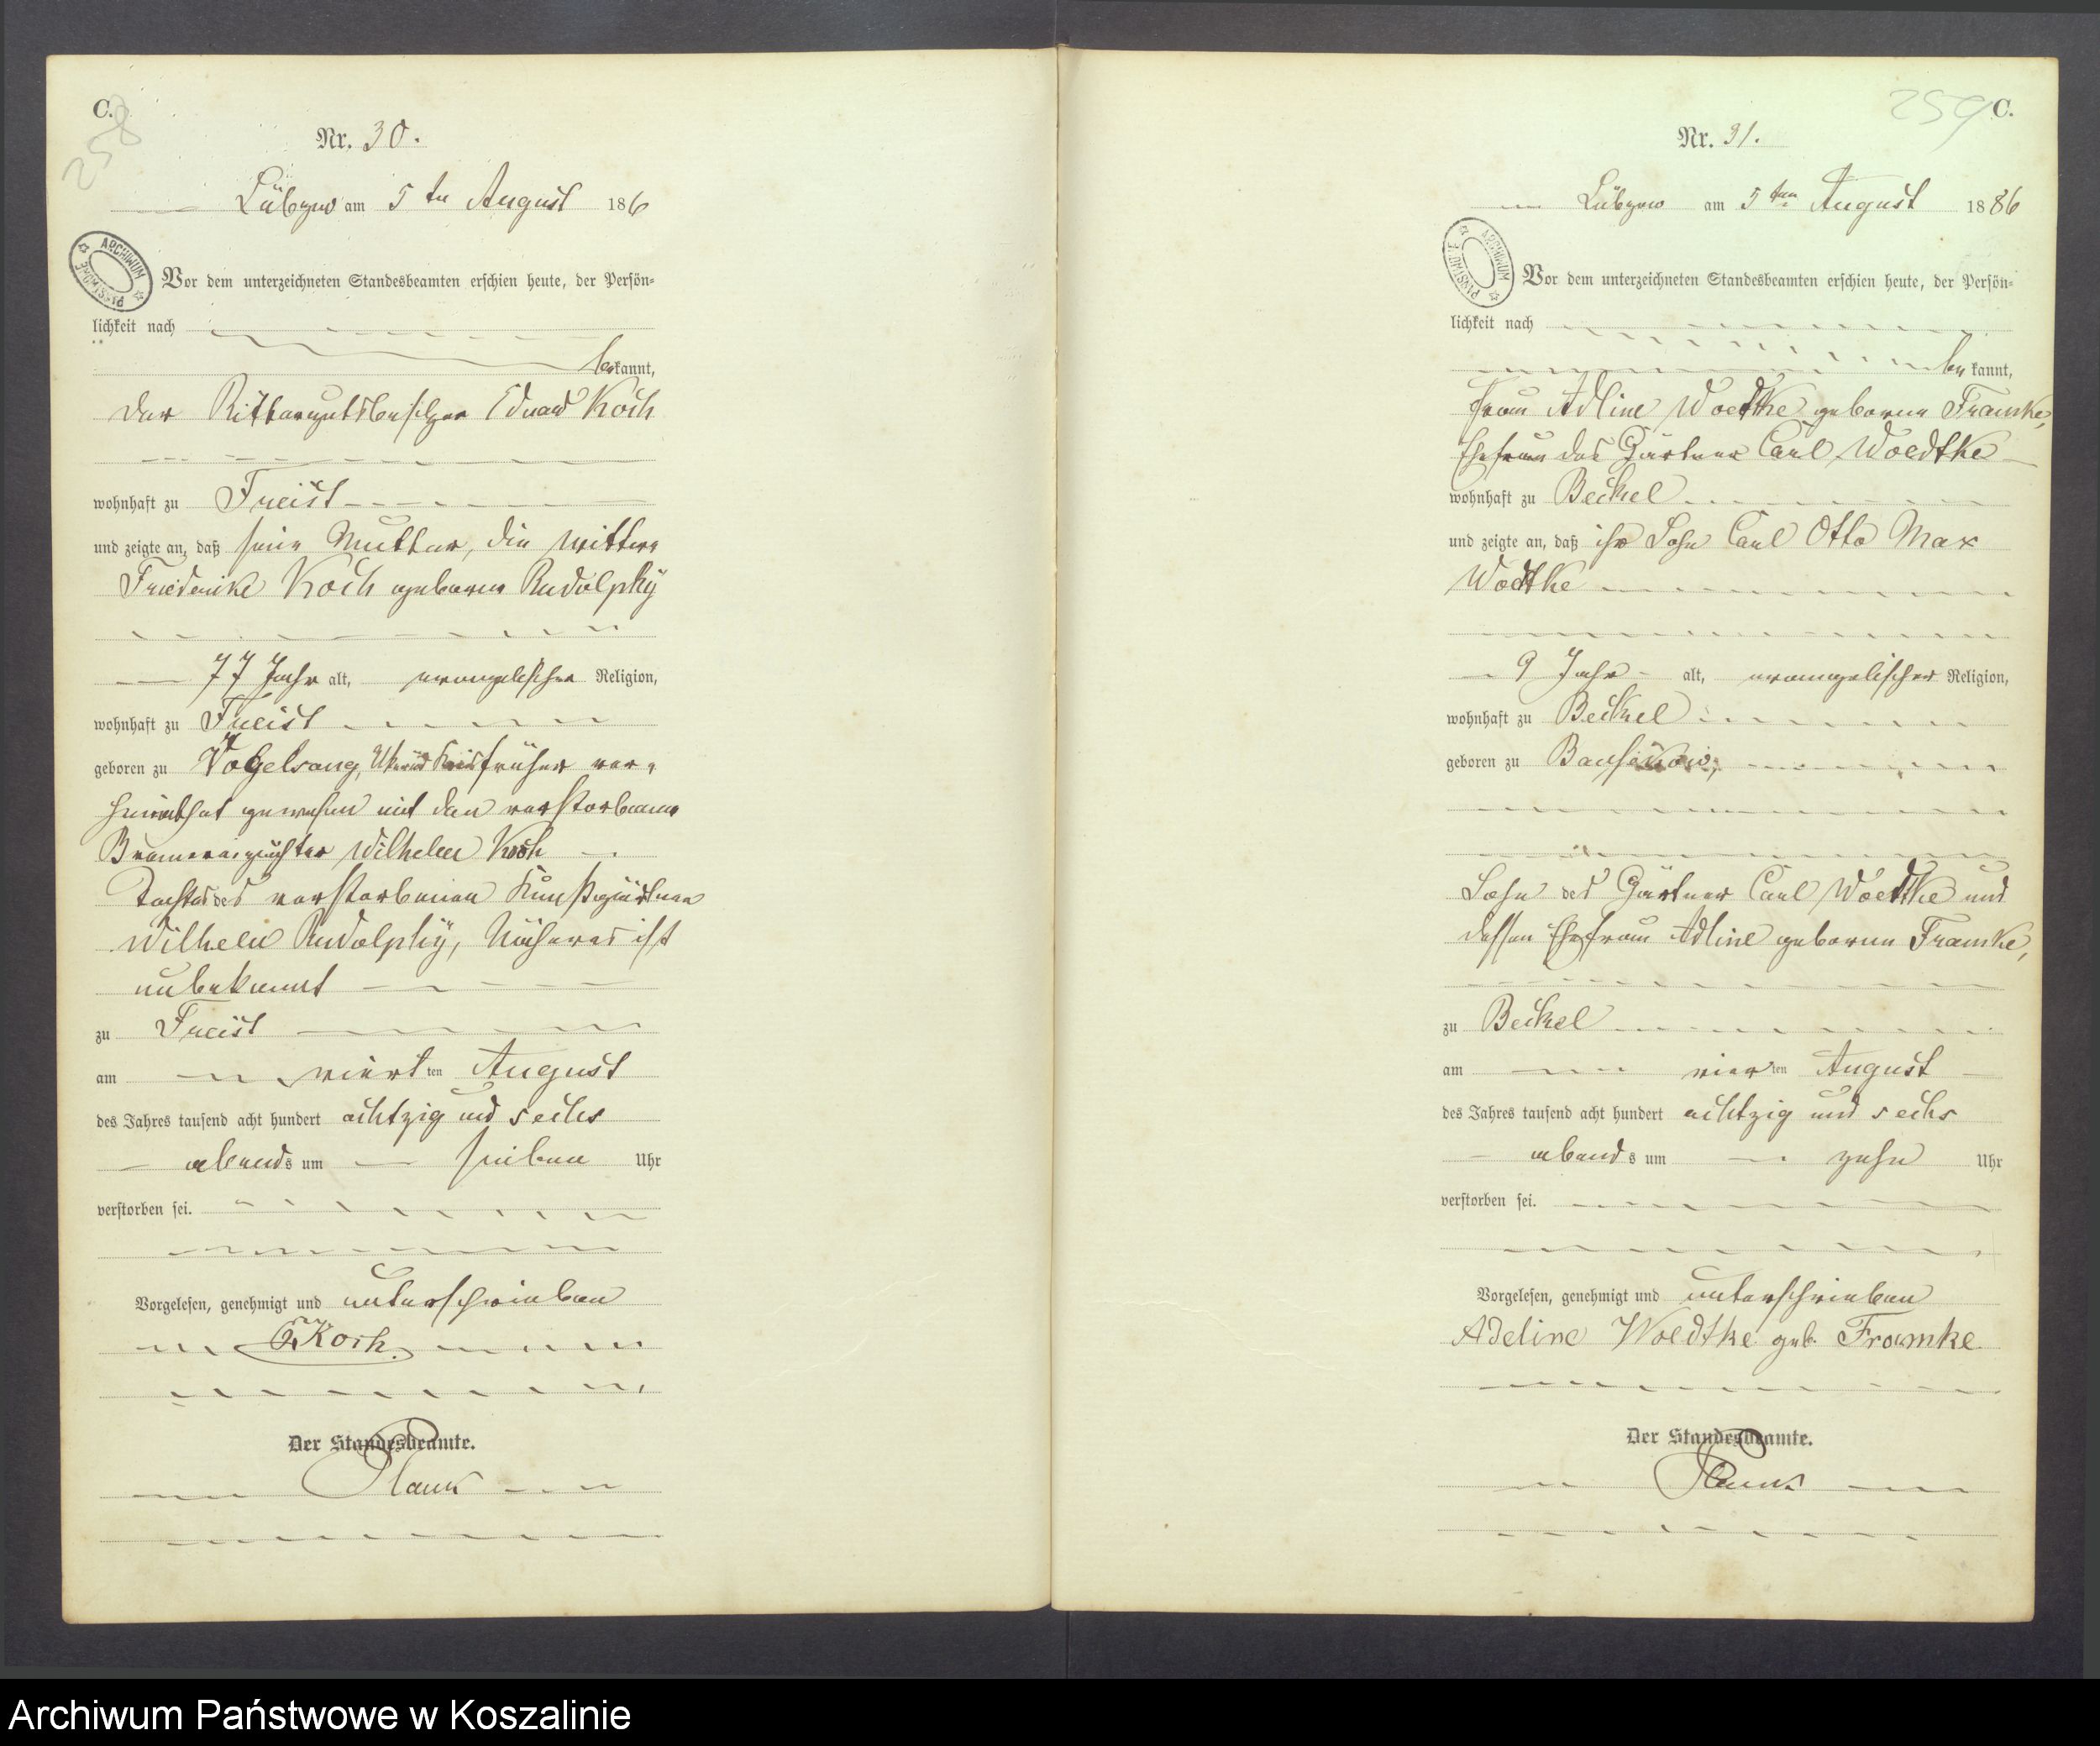 C.
258
Nr. 30.
Lübzow am 5 ten August 1886
ARCHIWUM PAŃSTWOWE
Vor dem unterzeichneten Standesbeamten erschien heute, der Persön-
lichkeit nach
bekannt,
der Rittergutsbesitzer Eduard Koch
wohnhaft zu Freist
und zeigte an, daß seine Mutter, die Wittwe
Friederike Koch geborne Rudolphÿ
77 Jahr alt, evangelischer Religion,
wohnhaft zu Freist
geboren zu Vogelsang, früher ver-
heirathet gewesen mit dem verstorbenen
Brennereipächter Wilhelm Koch
Tochter des verstorbenen Kunstgärtner
Wilhelm Rudolphÿ, Näheres ist
unbekannt
zu Freist
am vierten August
des Jahres tausend acht hundert achtzig und sechs
abends um sieben Uhr
verstorben sei.
Vorgelesen, genehmigt und unterschrieben
Koch.
Der Standesbeamte.
C.
259
Nr. 31.
Lübzow am 5 ten August 1886
ARCHIWUM PAŃSTWOWE
Vor dem unterzeichneten Standesbeamten erschien heute, der Persön-
lichkeit nach
bekannt,
Frau Adline Woedtke geborne Framke,
Ehefrau des Gärtner Carl Woedtke
wohnhaft zu Beckel
und zeigte an, daß ihr Sohn Carl Otto Max
Woedtke
9 Jahr alt, evangelischer Religion,
wohnhaft zu Beckel
geboren zu
Sohn des Gärtner Carl Woedtke und
dessen Ehefrau Adline geborne Framke,
zu Beckel
am vierten August
des Jahres tausend acht hundert achtzig und sechs
abends um zehn Uhr
verstorben sei.
Vorgelesen, genehmigt und unterschrieben
Adeline Woedtke geb. Framke
Der Standesbeamte.
Archiwum Państwowe w Koszalinie